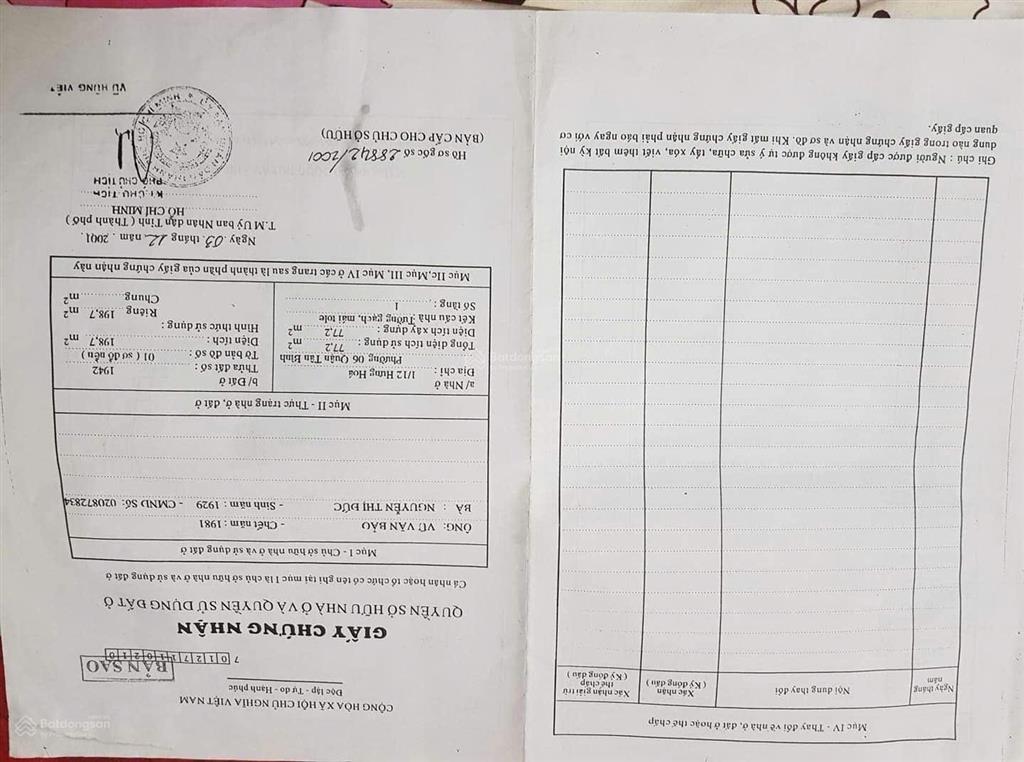 CỘNG HÒA XÃ HỘI CHỦ NGHĨA VIỆT NAM
Độc lập - Tự do - Hạnh phúc
BẢN SAO
GIẤY CHỨNG NHẬN
QUYỀN SỞ HỮU NHÀ Ở VÀ QUYỀN SỬ DỤNG ĐẤT Ở
Cá nhân hoặc tổ chức có tên ghi tại mục I là chủ sở hữu nhà ở và sử dụng đất ở
Mục I - Chủ sở hữu nhà ở và sử dụng đất ở
ÔNG: VŨ VĂN BẢO - Chết năm : 1981
BÀ : NGUYỄN THỊ ĐỨC - Sinh năm : 1929 - CMND Số: 020872834
Mục II - Thực trạng nhà ở, đất ở
a/ Nhà ở
Địa chỉ : 1/12 Hưng Hoá
Phường 06 Quận Tân Bình
Tổng diện tích sử dụng : 77,2 m²
Diện tích xây dựng : 77,2 m²
Kết cấu nhà : Tường gạch, mái tole
Số tầng : 1
b/ Đất ở
Thửa đất số : 1942
Tờ bản đồ số : 01 ( sơ đồ nền )
Diện tích : 198,7 m²
Hình thức sử dụng :
Riêng 198,7 m²
Chung m²
Mục IIc, Mục III, Mục IV ở các trang sau là thành phần của giấy chứng nhận này
Ngày 03 tháng 12 năm 2001
T.M Uỷ ban Nhân dân Tỉnh ( Thành phố )
HỒ CHÍ MINH
KT. CHỦ TỊCH
PHÓ CHỦ TỊCH
Hồ sơ gốc số 28842/2001
(BẢN CẤP CHO CHỦ SỞ HỮU)
VŨ HÙNG VIỆT
Mục IV - Thay đổi về nhà ở, đất ở hoặc thế chấp
Ngày tháng năm
Nội dung thay đổi
Xác nhận
( Ký đóng dấu )
Xác nhận giải trừ thế chấp
( Ký đóng dấu )
Ghi chú : Người được cấp giấy không được tự ý sửa chữa, tẩy xóa, viết thêm bất kỳ nội
dung nào trong giấy chứng nhận và sơ đồ. Khi mất giấy chứng nhận phải báo ngay với cơ
quan cấp giấy.
Batdongsan
Batdongsan